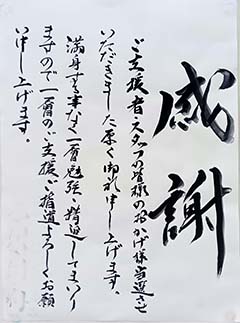 感謝
ご支援者・スタッフの皆様のおかげ様当選させ
いただきました厚く御礼申し上げます。
満身する事なく一層勉強、精進してまいり
ますので一層のご支援ご指導よろしくお願
い申し上げます。